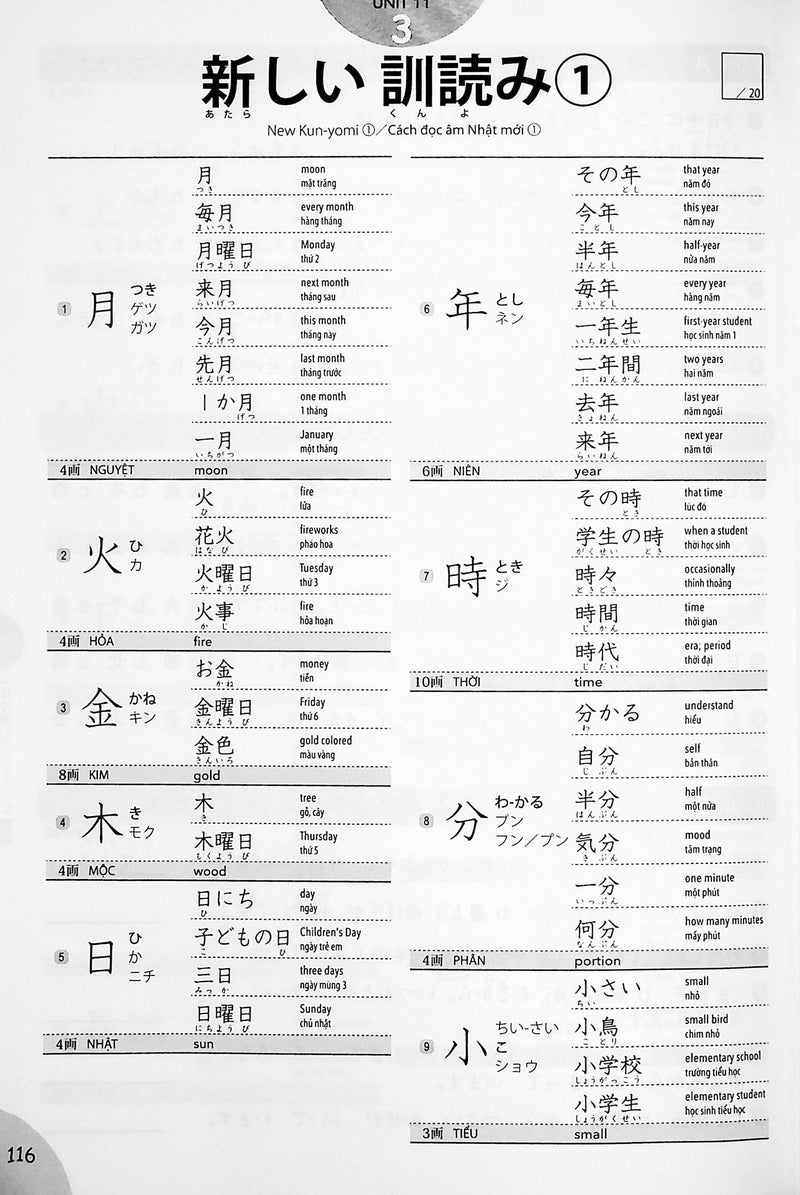 UNIT 11
3
新しい 訓読み①
あたら くんよ
New Kun-yomi ①/Cách đọc âm Nhật mới ①
/20
1
月
つき
ゲツ
ガツ
月
つき
moon
mặt trăng
毎月
まいつき
every month
hàng tháng
月曜日
げつようび
Monday
thứ 2
来月
らいげつ
next month
tháng sau
今月
こんげつ
this month
tháng này
先月
せんげつ
last month
tháng trước
一か月
げつ
one month
1 tháng
一月
いちがつ
January
một tháng
4画 NGUYỆT moon
2
火
ひ
カ
火
ひ
fire
lửa
花火
はなび
fireworks
pháo hoa
火曜日
かようび
Tuesday
thứ 3
火事
かじ
fire
hỏa hoạn
4画 HỎA fire
3
金
かね
キン
お金
かね
money
tiền
金曜日
きんようび
Friday
thứ 6
金色
きんいろ
gold colored
màu vàng
8画 KIM gold
4
木
き
モク
木
き
tree
gỗ, cây
木曜日
もくようび
Thursday
thứ 5
4画 MỘC wood
5
日
ひ
か
ニチ
日にち
ひ
day
ngày
子どもの日
こ ひ
Children's Day
ngày trẻ em
三日
みっか
three days
ngày mùng 3
日曜日
にちようび
Sunday
chủ nhật
4画 NHẬT sun
6
年
とし
ネン
その年
とし
that year
năm đó
今年
ことし
this year
năm nay
半年
はんとし
half-year
nửa năm
毎年
まいとし
every year
hàng năm
一年生
いちねんせい
first-year student
học sinh năm 1
二年間
にねんかん
two years
hai năm
去年
きょねん
last year
năm ngoái
来年
らいねん
next year
năm tới
6画 NIÊN year
7
時
とき
ジ
その時
とき
that time
lúc đó
学生の時
がくせい とき
when a student
thời học sinh
時々
ときどき
occasionally
thỉnh thoảng
時間
じかん
time
thời gian
時代
じだい
era; period
thời đại
10画 THỜI time
8
分
わ-かる
ブン
フン/プン
分かる
わ
understand
hiểu
自分
じぶん
self
bản thân
半分
はんぶん
half
một nửa
気分
きぶん
mood
tâm trạng
一分
いっぷん
one minute
một phút
何分
なんぷん
how many minutes
mấy phút
4画 PHÂN portion
9
小
ちい-さい
こ
ショウ
小さい
ちい
small
nhỏ
小鳥
ことり
small bird
chim nhỏ
小学校
しょうがっこう
elementary school
trường tiểu học
小学生
しょうがくせい
elementary student
học sinh tiểu học
3画 TIỂU small
116